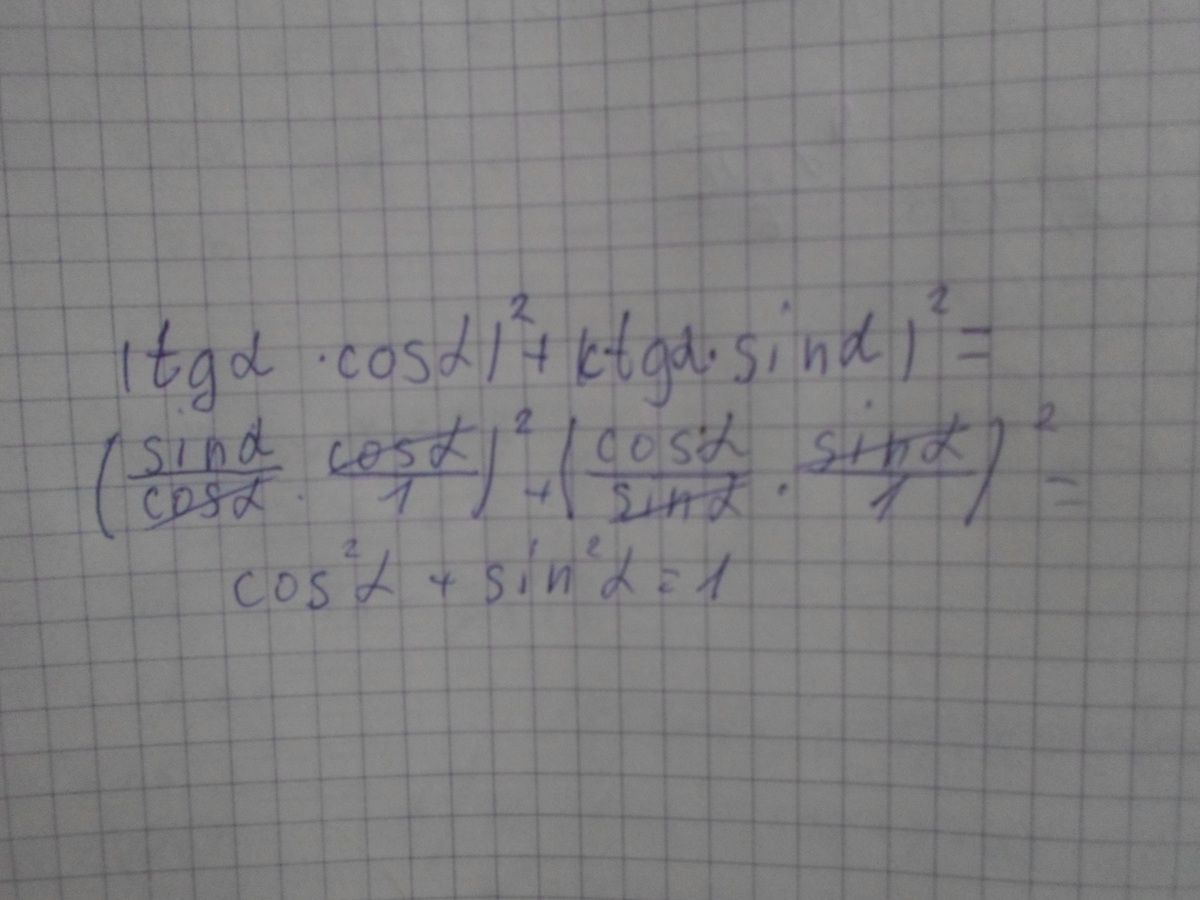 (tgα · cosα)² + (ctgα · sinα)² =
(sinα/cosα · cosα/1)² + (cosα/sinα · sinα/1)² =
cos²α + sin²α = 1